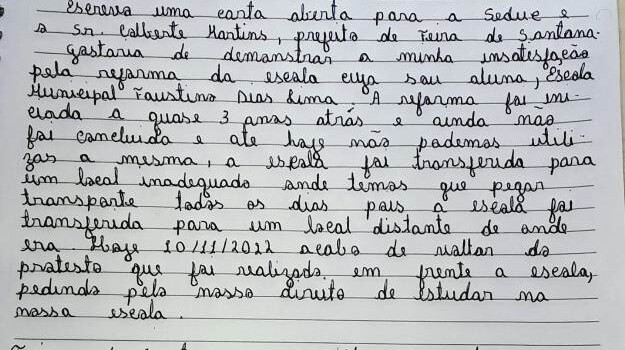 Escrevo uma carta aberta para a Seduc e
o Sr. Colberte Martins, prefeito de Feira de Santana.
Gostaria de demonstrar a minha insatisfação
pela reforma da escola cuja sou aluna, Escola
Municipal Faustino Dias Lima. A reforma foi ini-
ciada a quase 3 anos atrás e ainda não
foi concluida e até hoje não podemos utili-
zas a mesma, a escola foi transferida para
um local inadequado onde temos que pegar
transporte todos os dias pois a escola foi
transferida para um local distante de onde
era. Hoje 10/11/2022 acabo de voltar do
protesto que foi realizado em frente a escola,
pedindo pelo nosso direito de estudar na
nossa escola.